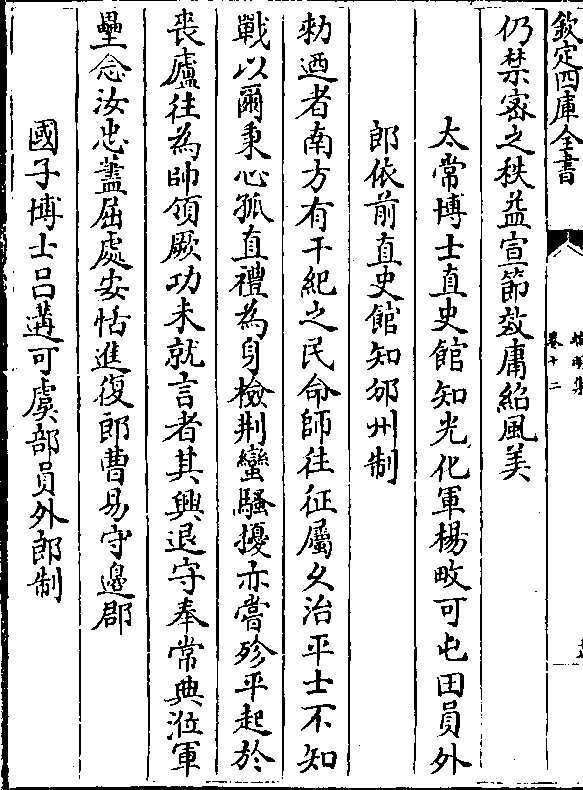 欽定四庫全書
卷十二
仍禁密之秩益宣節效庸紹風美
太常博士直史館知光化軍楊畋可屯田員外
郎依前直史館知邠州制
勑迺者南方有干紀之民命師往征屬久治平士不知
戰以爾秉心孤直禮為身檢荆蠻騷擾亦嘗殄平起於
喪廬往為帥領厥功未就言者其興退守奉常典涖軍
壘念汝忠蓋屈處安恬進復郎曹易守邊郡
國子博士吕遘可虞部員外郎制